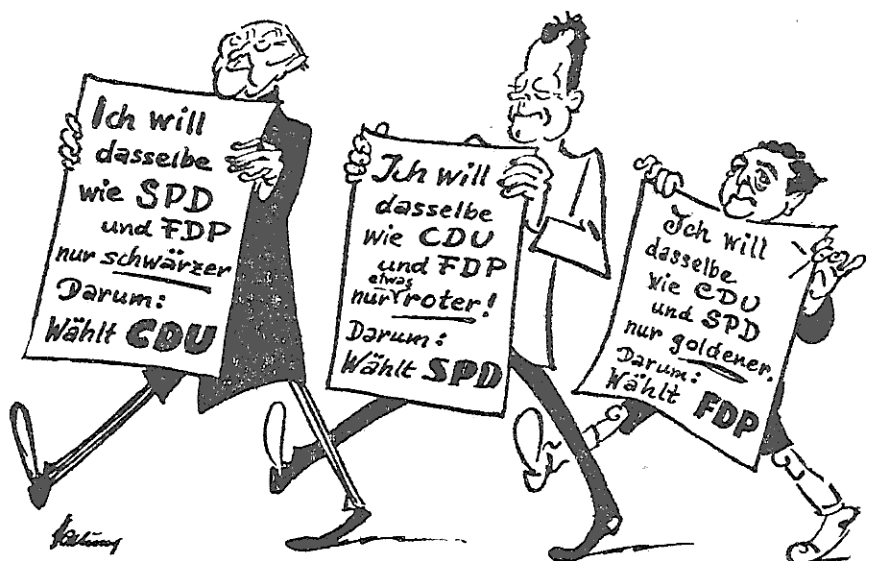 Ich will
dasselbe
wie SPD
und FDP
nur schwärzer
Darum:
Wählt CDU
Ich will
dasselbe
wie CDU
und FDP
nur etwas roter!
Darum:
Wählt SPD
Ich will
dasselbe
wie CDU
und SPD
nur goldener.
Darum:
Wählt FDP